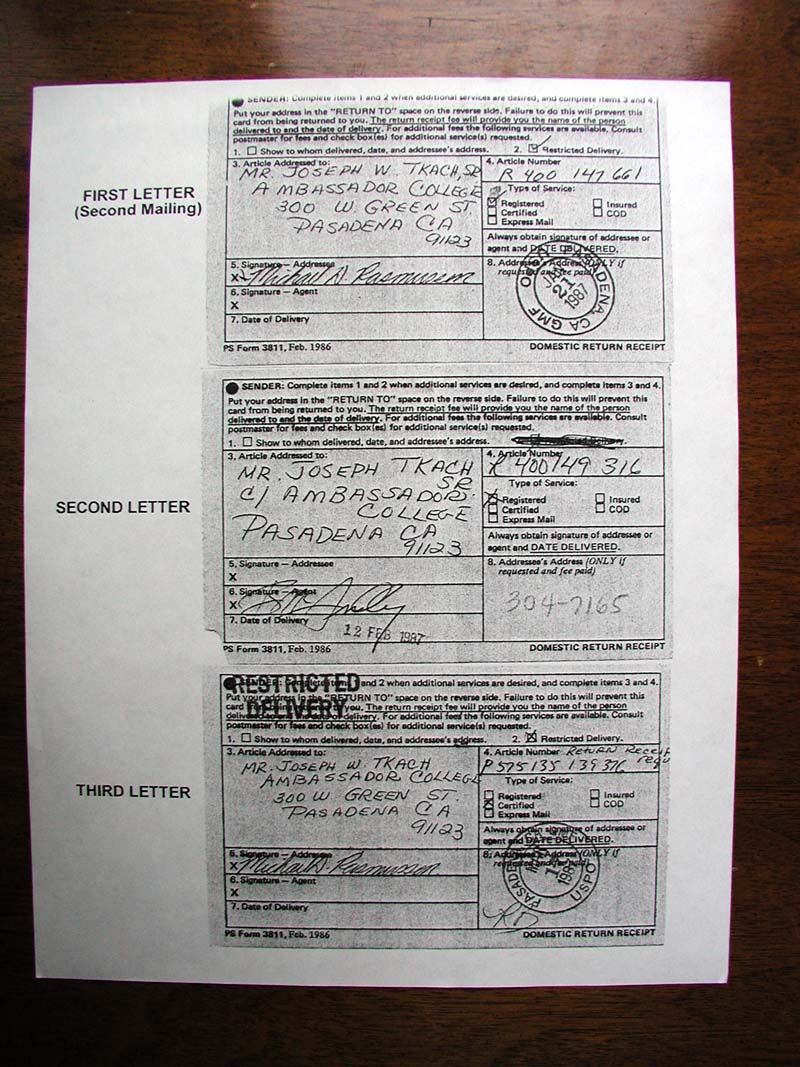 FIRST LETTER
(Second Mailing)
SENDER: Complete items 1 and 2 when additional services are desired, and complete items 3 and 4.
Put your address in the "RETURN TO" space on the reverse side. Failure to do this will prevent this
card from being returned to you. The return receipt fee will provide you the name of the person
delivered to and the date of delivery. For additional fees the following services are available. Consult
postmaster for fees and check box(es) for additional service(s) requested.
1. Show to whom delivered, date, and addressee's address.
2. Restricted Delivery.
3. Article Addressed to:
MR. JOSEPH W. TKACH, SR
AMBASSADOR COLLEGE
300 W. GREEN ST.
PASADENA CA
91123
4. Article Number
R 400 147 661
Type of Service:
Registered
Insured
Certified
COD
Express Mail
Always obtain signature of addressee or
agent and DATE DELIVERED.
5. Signature — Addressee
X Michael D. Rasmussen
6. Signature — Agent
X
7. Date of Delivery
8. Addressee's Address (ONLY if
requested and fee paid)
PASADENA, CA GMF
21
1987
PS Form 3811, Feb. 1986
DOMESTIC RETURN RECEIPT
SECOND LETTER
SENDER: Complete items 1 and 2 when additional services are desired, and complete items 3 and 4.
Put your address in the "RETURN TO" space on the reverse side. Failure to do this will prevent this
card from being returned to you. The return receipt fee will provide you the name of the person
delivered to and the date of delivery. For additional fees the following services are available. Consult
postmaster for fees and check box(es) for additional service(s) requested.
1. Show to whom delivered, date, and addressee's address.
3. Article Addressed to:
MR. JOSEPH TKACH
SR
c/ AMBASSADOR
COLLEGE
PASADENA CA
91123
4. Article Number
R 400149 316
Type of Service:
Registered
Insured
Certified
COD
Express Mail
Always obtain signature of addressee or
agent and DATE DELIVERED.
5. Signature — Addressee
X
6. Signature — Agent
X
7. Date of Delivery
12 FEB 1987
8. Addressee's Address (ONLY if
requested and fee paid)
304-7165
PS Form 3811, Feb. 1986
DOMESTIC RETURN RECEIPT
THIRD LETTER
RESTRICTED
DELIVERY
SENDER: Complete items 1 and 2 when additional services are desired, and complete items 3 and 4.
Put your address in the "RETURN TO" space on the reverse side. Failure to do this will prevent this
card from being returned to you. The return receipt fee will provide you the name of the person
delivered to and the date of delivery. For additional fees the following services are available. Consult
postmaster for fees and check box(es) for additional service(s) requested.
1. Show to whom delivered, date, and addressee's address.
2. Restricted Delivery.
3. Article Addressed to:
MR. JOSEPH W. TKACH
AMBASSADOR COLLEGE
300 W GREEN ST.
PASADENA CA
91123
4. Article Number Return Receipt
requ
P 575 135 139 376
Type of Service:
Registered
Insured
Certified
COD
Express Mail
Always obtain signature of addressee or
agent and DATE DELIVERED.
5. Signature — Addressee
X Michael D. Rasmussen
6. Signature — Agent
X
7. Date of Delivery
8. Addressee's Address (ONLY if
requested and fee paid)
USPO
PS Form 3811, Feb. 1986
DOMESTIC RETURN RECEIPT